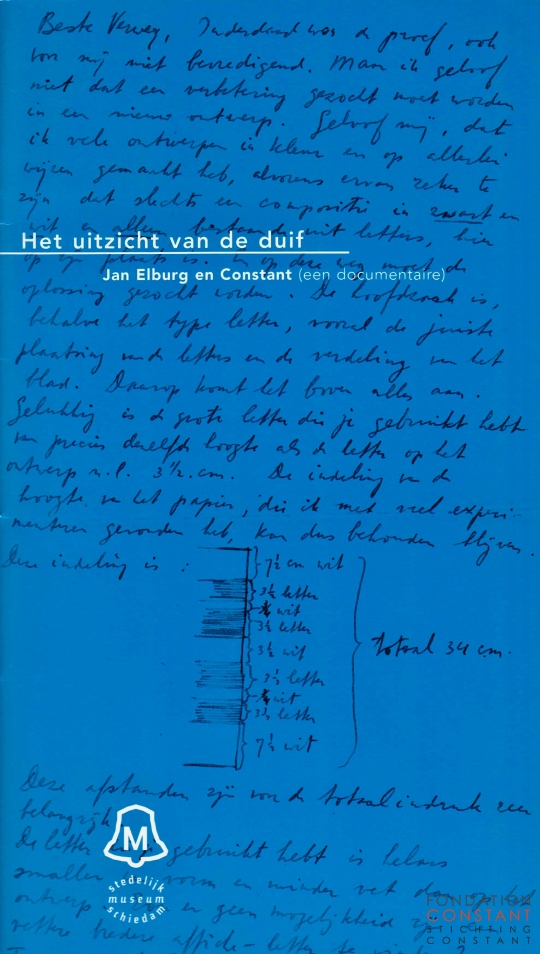 Beste Verwey, Inderdaad was de proef, ook
voor mij niet bevredigend. Maar ik geloof
niet dat een verbetering gezocht moet worden
in een nieuw ontwerp. Geloof mij, dat
ik vele ontwerpen in kleur en op allerlei
wijzen gemaakt heb, alvorens ervan zeker te
zijn dat slechts een compositie in zwart en
wit en alleen bestaande uit letters, hier
Het uitzicht van de duif
op zijn plaats is. En op deze weg moet de
Jan Elburg en Constant (een documentaire)
oplossing gezocht worden. De hoofdzaak is,
behalve het type letter, vooral de juiste
plaatsing van de letters en de verdeling van het
blad. Daarop komt het boven alles aan.
Gelukkig is de grote letter die je gebruikt hebt
van precies dezelfde hoogte als de letter op het
ontwerp n.l. 3 1/2 cm. De indeling van de
hoogte van het papier, die ik met veel experi-
menteren gevonden heb, kan dus behouden blijven.
Deze indeling is :
7 1/2 cm wit
3 1/2 letter
wit
3 1/2 letter
3 1/2 wit
3 1/2 letter
wit
3 1/2 letter
7 1/2 wit
totaal 34 cm.
Deze afstanden zijn voor de totaalindruk zeer
belangrijk.
De letter gebruikt hebt is helaas
smaller vorm en minder vet dan op het
ontwerp er geen mogelijkheid zijn
vettere bredere affiche-letter te
M
stedelijk
museum
schiedam
FONDATION
CONSTANT
STICHTING
CONSTANT